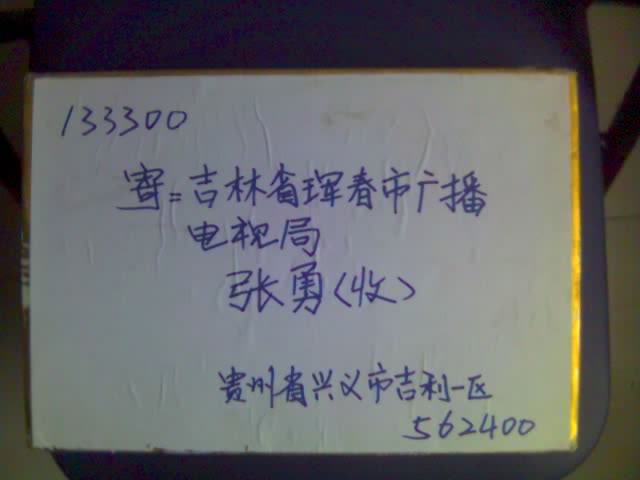 133300
寄:吉林省珲春市广播
电视局
张勇(收)
贵州省兴义市吉利一区
562400